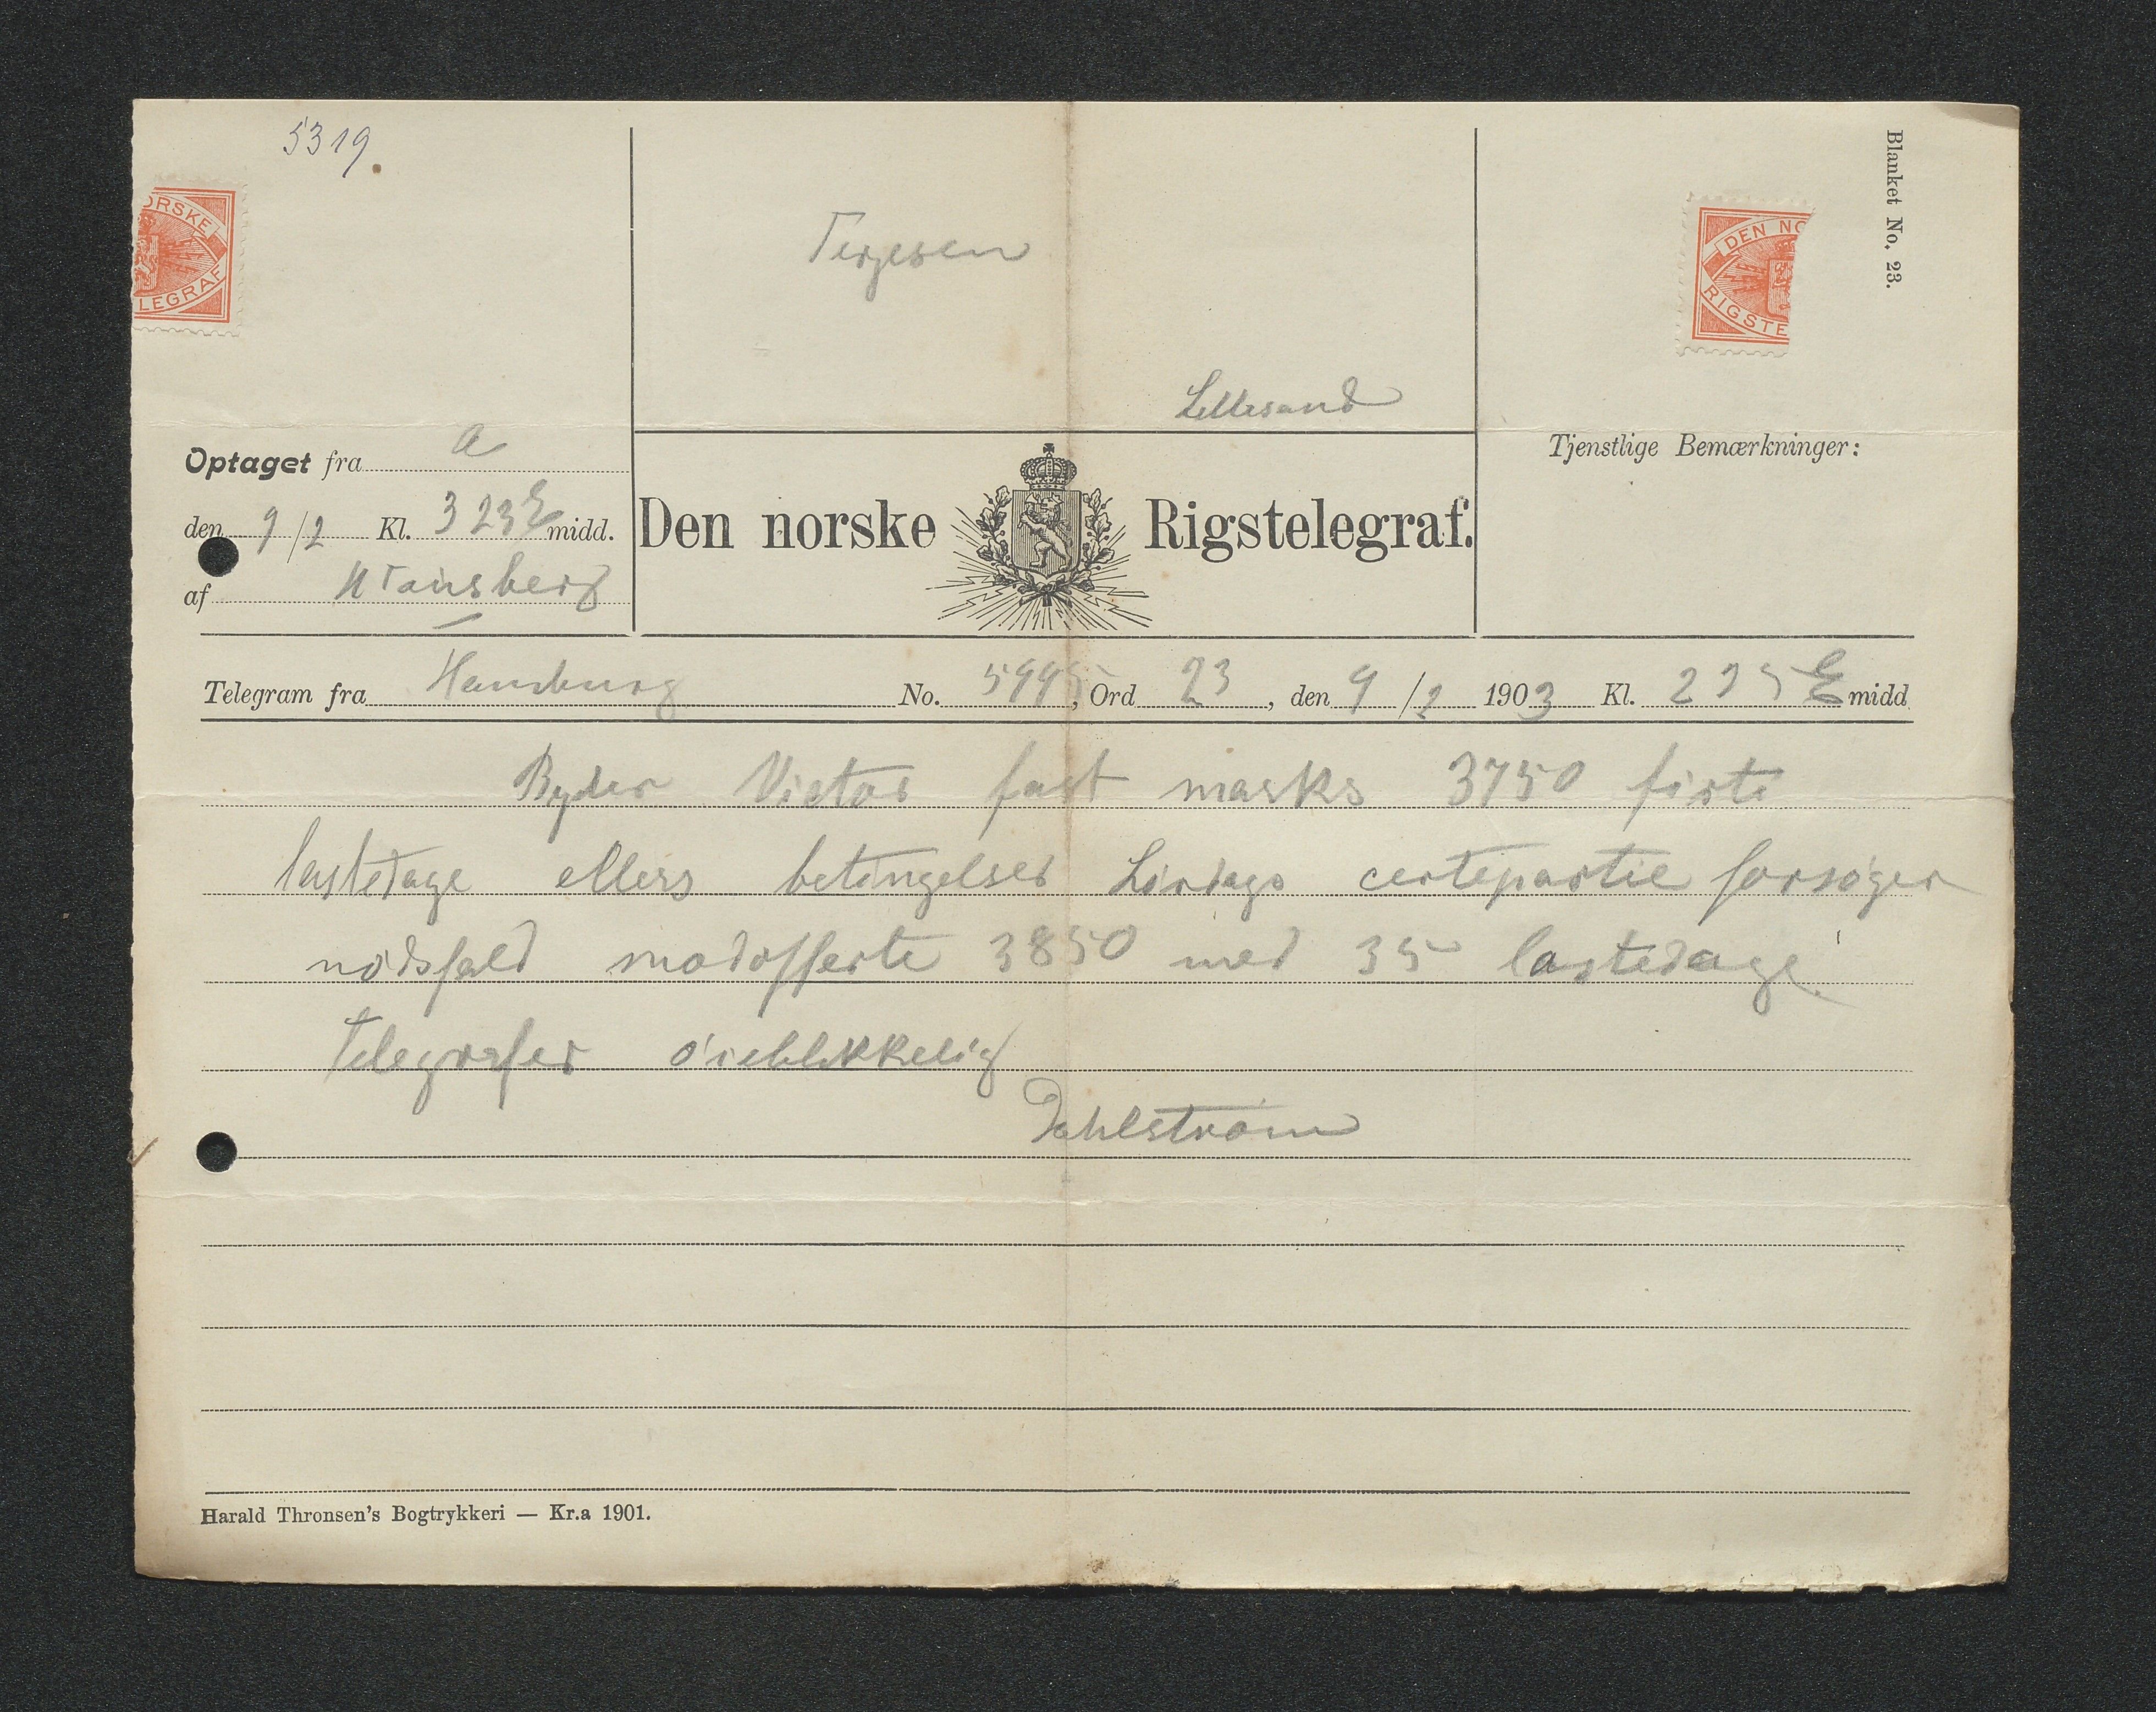 5319.
ORSKE
LEGRAF
DEN NO
RIGSTE
Blanket No. 23.
Terjesen
Lillesand
Optaget fra a
den 9/2 Kl. 323 E midd.
af
Den norske Rigstelegraf.
Tjenstlige Bemærkninger:
Telegram fra Hamburg No. 5995, Ord 23, den 9/2 1903 Kl. 225 E midd
Byder Victor fast marks 3750 firti
lastedage ellers betingelser Lørdags certepartie forsøger
nødsfald modofferte 3850 med 35 lastedage
Telegrafer øieblikkelig
Dahlstrøm
Harald Thronsen's Bogtrykkeri — Kr.a 1901.